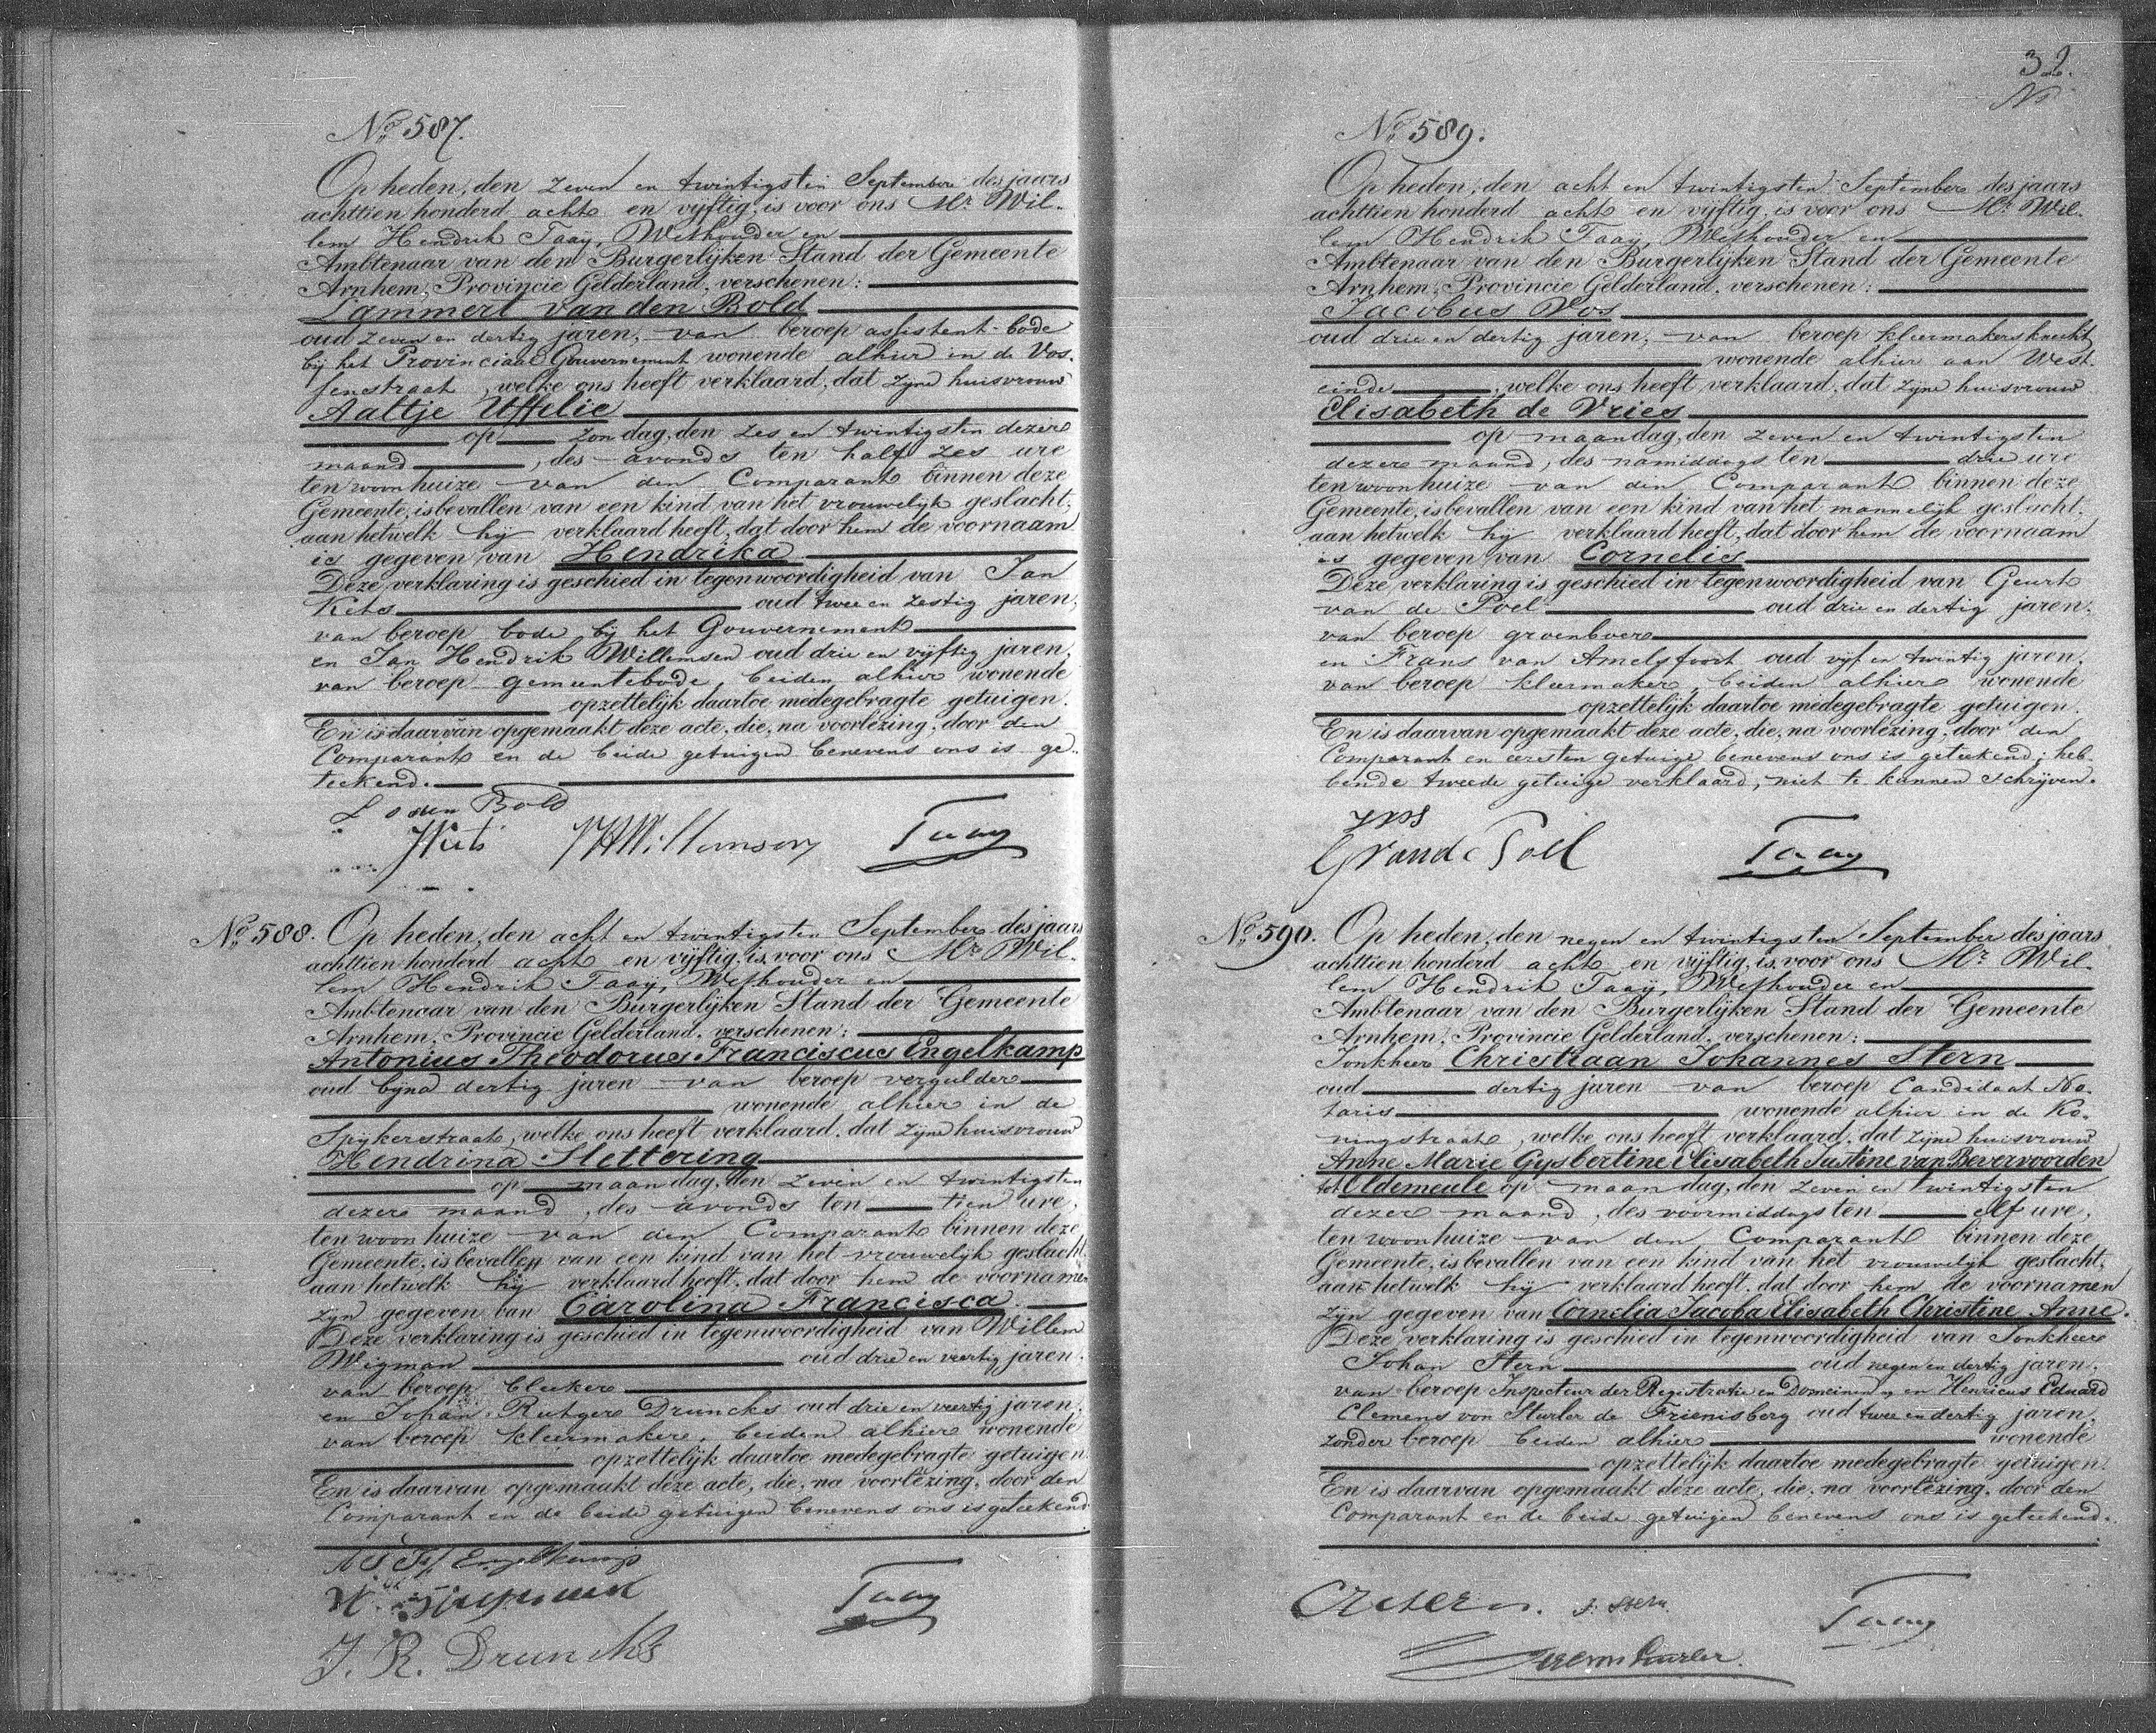 No. 587.
Op heden, den zeven en twintigsten September des jaars
achttien honderd acht en vijftig, is voor ons Mr. Wil-
lem Hendrik Taaij, Wethouder en
Ambtenaar van den Burgerlijken Stand der Gemeente
Arnhem, Provincie Gelderland, verschenen:
Lammert van den Bold
oud zeven en dertig jaren, van beroep assistent-bode
bij het Provinciaal Gouvernement wonende alhier in de Vos-
senstraat, welke ons heeft verklaard, dat zijne huisvrouw
Aaltje Uffelie
op zondag, den zes en twintigsten dezer
maand, des avonds ten half zes ure
ten woonhuize van den Comparant binnen deze
Gemeente, is bevallen van een kind van het vrouwelijk geslacht,
aan hetwelk hij verklaard heeft, dat door hem de voornaam
is gegeven van Hendrika
Deze verklaring is geschied in tegenwoordigheid van Jan
oud twee en zestig jaren,
van beroep bode bij het Gouvernement
en Jan Hendrik Willemsen oud drie en vijftig jaren,
van beroep gemeentebode, beiden alhier wonende
opzettelijk daartoe medegebragte getuigen.
En is daarvan opgemaakt deze acte, die, na voorlezing, door den
Comparant en de beide getuigen benevens ons is ge-
teekend.
L v den Bold
JHWillemsen Taaij
No. 588. Op heden, den acht en twintigsten September des jaars
achttien honderd acht en vijftig, is voor ons Mr. Wil-
lem Hendrik Taaij, Wethouder en
Ambtenaar van den Burgerlijken Stand der Gemeente
Arnhem, Provincie Gelderland, verschenen:
Antonius Theodorus Franciscus Engelkamp
oud bijna dertig jaren van beroep vergulder
wonende alhier in de
Spijkerstraat, welke ons heeft verklaard, dat zijne huisvrouw
Hendrina Slettering
op maandag, den zeven en twintigsten
dezer maand, des avonds ten tien ure,
ten woonhuize van den Comparant binnen deze
Gemeente, is bevallen van een kind van het vrouwelijk geslacht,
aan hetwelk hij verklaard heeft, dat door hem de voornamen
zijn gegeven van Carolina Francisca
Deze verklaring is geschied in tegenwoordigheid van Willem
Wigman oud drie en veertig jaren,
van beroep bleeker
en Johan Rutger Druncks oud drie en veertig jaren,
van beroep kleermaker, beiden alhier wonende
opzettelijk daartoe medegebragte getuigen
En is daarvan opgemaakt deze acte, die, na voorlezing, door den
Comparant en de beide getuigen benevens ons is geteekend
Engelkamp
Taaij
J. R. Druncks
32.
No. 589.
Op heden, den acht en twintigsten September des jaars
achttien honderd acht en vijftig, is voor ons Mr. Wil-
lem Hendrik Taaij, Wethouder en
Ambtenaar van den Burgerlijken Stand der Gemeente
Arnhem, Provincie Gelderland, verschenen:
Jacobus Vos
oud drie en dertig jaren, van beroep kleermakersknecht
wonende alhier aan West-
einde, welke ons heeft verklaard, dat zijne huisvrouw
Elisabeth de Vries
op maandag, den zeven en twintigsten
dezer maand, des namiddags ten drie ure
ten woonhuize van den Comparant binnen deze
Gemeente, is bevallen van een kind van het mannelijk geslacht,
aan hetwelk hij verklaard heeft, dat door hem de voornaam
is gegeven van Cornelis
Deze verklaring is geschied in tegenwoordigheid van Geurt
van de Poel oud drie en dertig jaren,
van beroep groenboer
en Frans van Amelsfoort oud vijf en twintig jaren,
van beroep kleermaker, beiden alhier wonende
opzettelijk daartoe medegebragte getuigen.
En is daarvan opgemaakt deze acte, die, na voorlezing, door den
Comparant en eersten getuige benevens ons is geteekend; heb-
bende tweede getuige verklaard, niet te kunnen schrijven.
J Vos
G van de Poel Taaij
No. 590. Op heden, den negen en twintigsten September des jaars
achttien honderd acht en vijftig, is voor ons Mr. Wil-
lem Hendrik Taaij, Wethouder en
Ambtenaar van den Burgerlijken Stand der Gemeente
Arnhem, Provincie Gelderland, verschenen:
Jonkheer Christiaan Johannes Stern
oud dertig jaren van beroep Candidaat No-
taris wonende alhier in de Ko-
ningstraat, welke ons heeft verklaard, dat zijne huisvrouw
Anne Marie Gysbertine Elisabeth Justine van Bevervoorden
tot Oldemeule op maandag, den zeven en twintigsten
dezer maand, des voormiddags ten elf ure,
ten woonhuize van den Comparant binnen deze
Gemeente, is bevallen van een kind van het vrouwelijk geslacht,
aan hetwelk hij verklaard heeft, dat door hem de voornamen
zijn gegeven van Cornelia Jacoba Elisabeth Christine Anne.
Deze verklaring is geschied in tegenwoordigheid van Jonkheer
Johan Stern oud negen en dertig jaren,
van beroep Inspecteur der Registratie en Domeinen, en Henricus Eduard
Clemens von Sturler de Frienisberg oud twee en dertig jaren,
zonder beroep beiden alhier wonende
opzettelijk daartoe medegebragte getuigen.
En is daarvan opgemaakt deze acte, die, na voorlezing, door den
Comparant en de beide getuigen benevens ons is geteekend.
CJ Stern. J. Stern. Taaij
von Sturler.